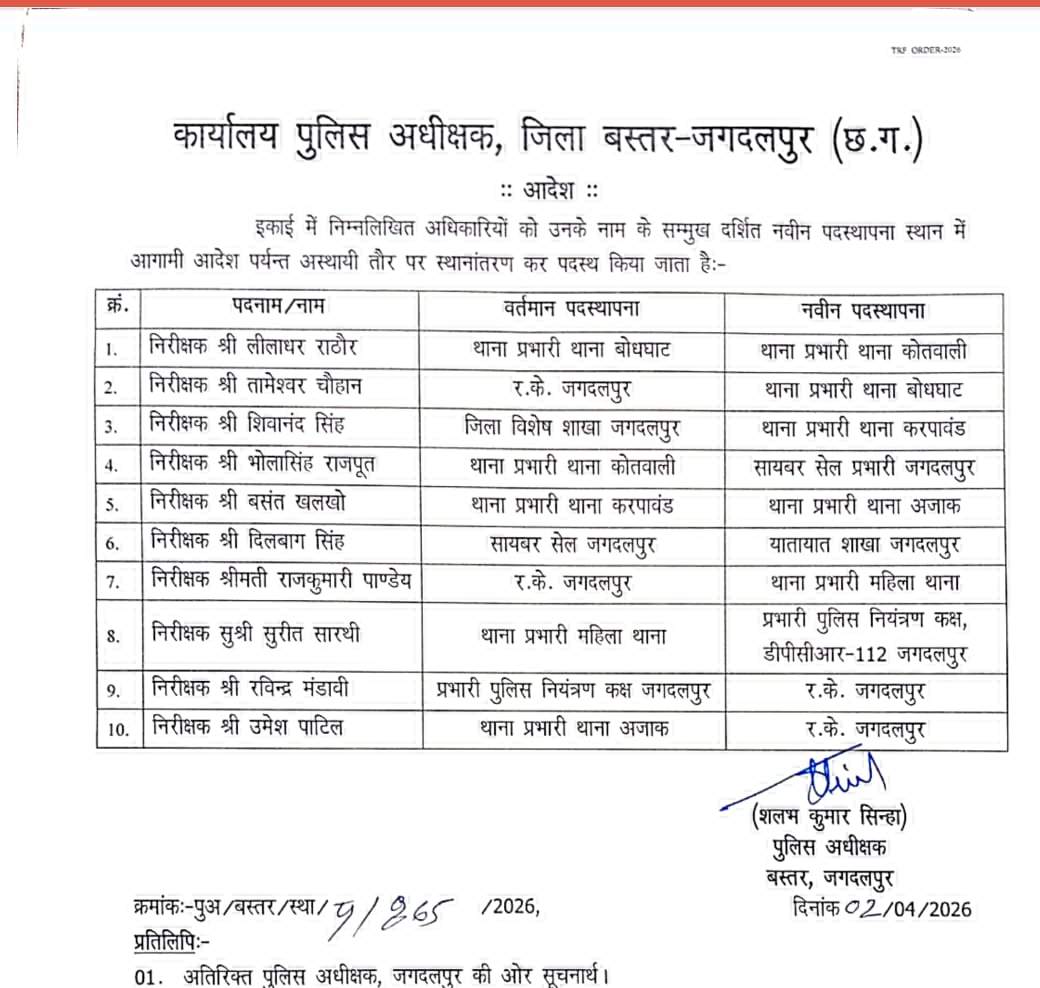 TRF ORDER-2026
कार्यालय पुलिस अधीक्षक, जिला बस्तर-जगदलपुर (छ.ग.)
:: आदेश ::
इकाई में निम्नलिखित अधिकारियों को उनके नाम के सम्मुख दर्शित नवीन पदस्थापना स्थान में
आगामी आदेश पर्यन्त अस्थायी तौर पर स्थानांतरण कर पदस्थ किया जाता है:-
क्रं. पदनाम/नाम वर्तमान पदस्थापना नवीन पदस्थापना
1. निरीक्षक श्री लीलाधर राठौर थाना प्रभारी थाना बोधघाट थाना प्रभारी थाना कोतवाली
2. निरीक्षक श्री तामेश्वर चौहान र.के. जगदलपुर थाना प्रभारी थाना बोधघाट
3. निरीक्षक श्री शिवानंद सिंह जिला विशेष शाखा जगदलपुर थाना प्रभारी थाना करपावंड
4. निरीक्षक श्री भोलासिंह राजपूत थाना प्रभारी थाना कोतवाली सायबर सेल प्रभारी जगदलपुर
5. निरीक्षक श्री बसंत खलखो थाना प्रभारी थाना करपावंड थाना प्रभारी थाना अजाक
6. निरीक्षक श्री दिलबाग सिंह सायबर सेल जगदलपुर यातायात शाखा जगदलपुर
7. निरीक्षक श्रीमती राजकुमारी पाण्डेय र.के. जगदलपुर थाना प्रभारी महिला थाना
8. निरीक्षक सुश्री सुरीत सारथी थाना प्रभारी महिला थाना प्रभारी पुलिस नियंत्रण कक्ष,
डीपीसीआर-112 जगदलपुर
9. निरीक्षक श्री रविन्द्र मंडावी प्रभारी पुलिस नियंत्रण कक्ष जगदलपुर र.के. जगदलपुर
10. निरीक्षक श्री उमेश पाटिल थाना प्रभारी थाना अजाक र.के. जगदलपुर
(शलभ कुमार सिन्हा)
पुलिस अधीक्षक
बस्तर, जगदलपुर
क्रमांक:-पुअ/बस्तर/स्था/ /2026, दिनांक 02/04/2026
प्रतिलिपि:-
01. अतिरिक्त पुलिस अधीक्षक, जगदलपुर की ओर सूचनार्थ।